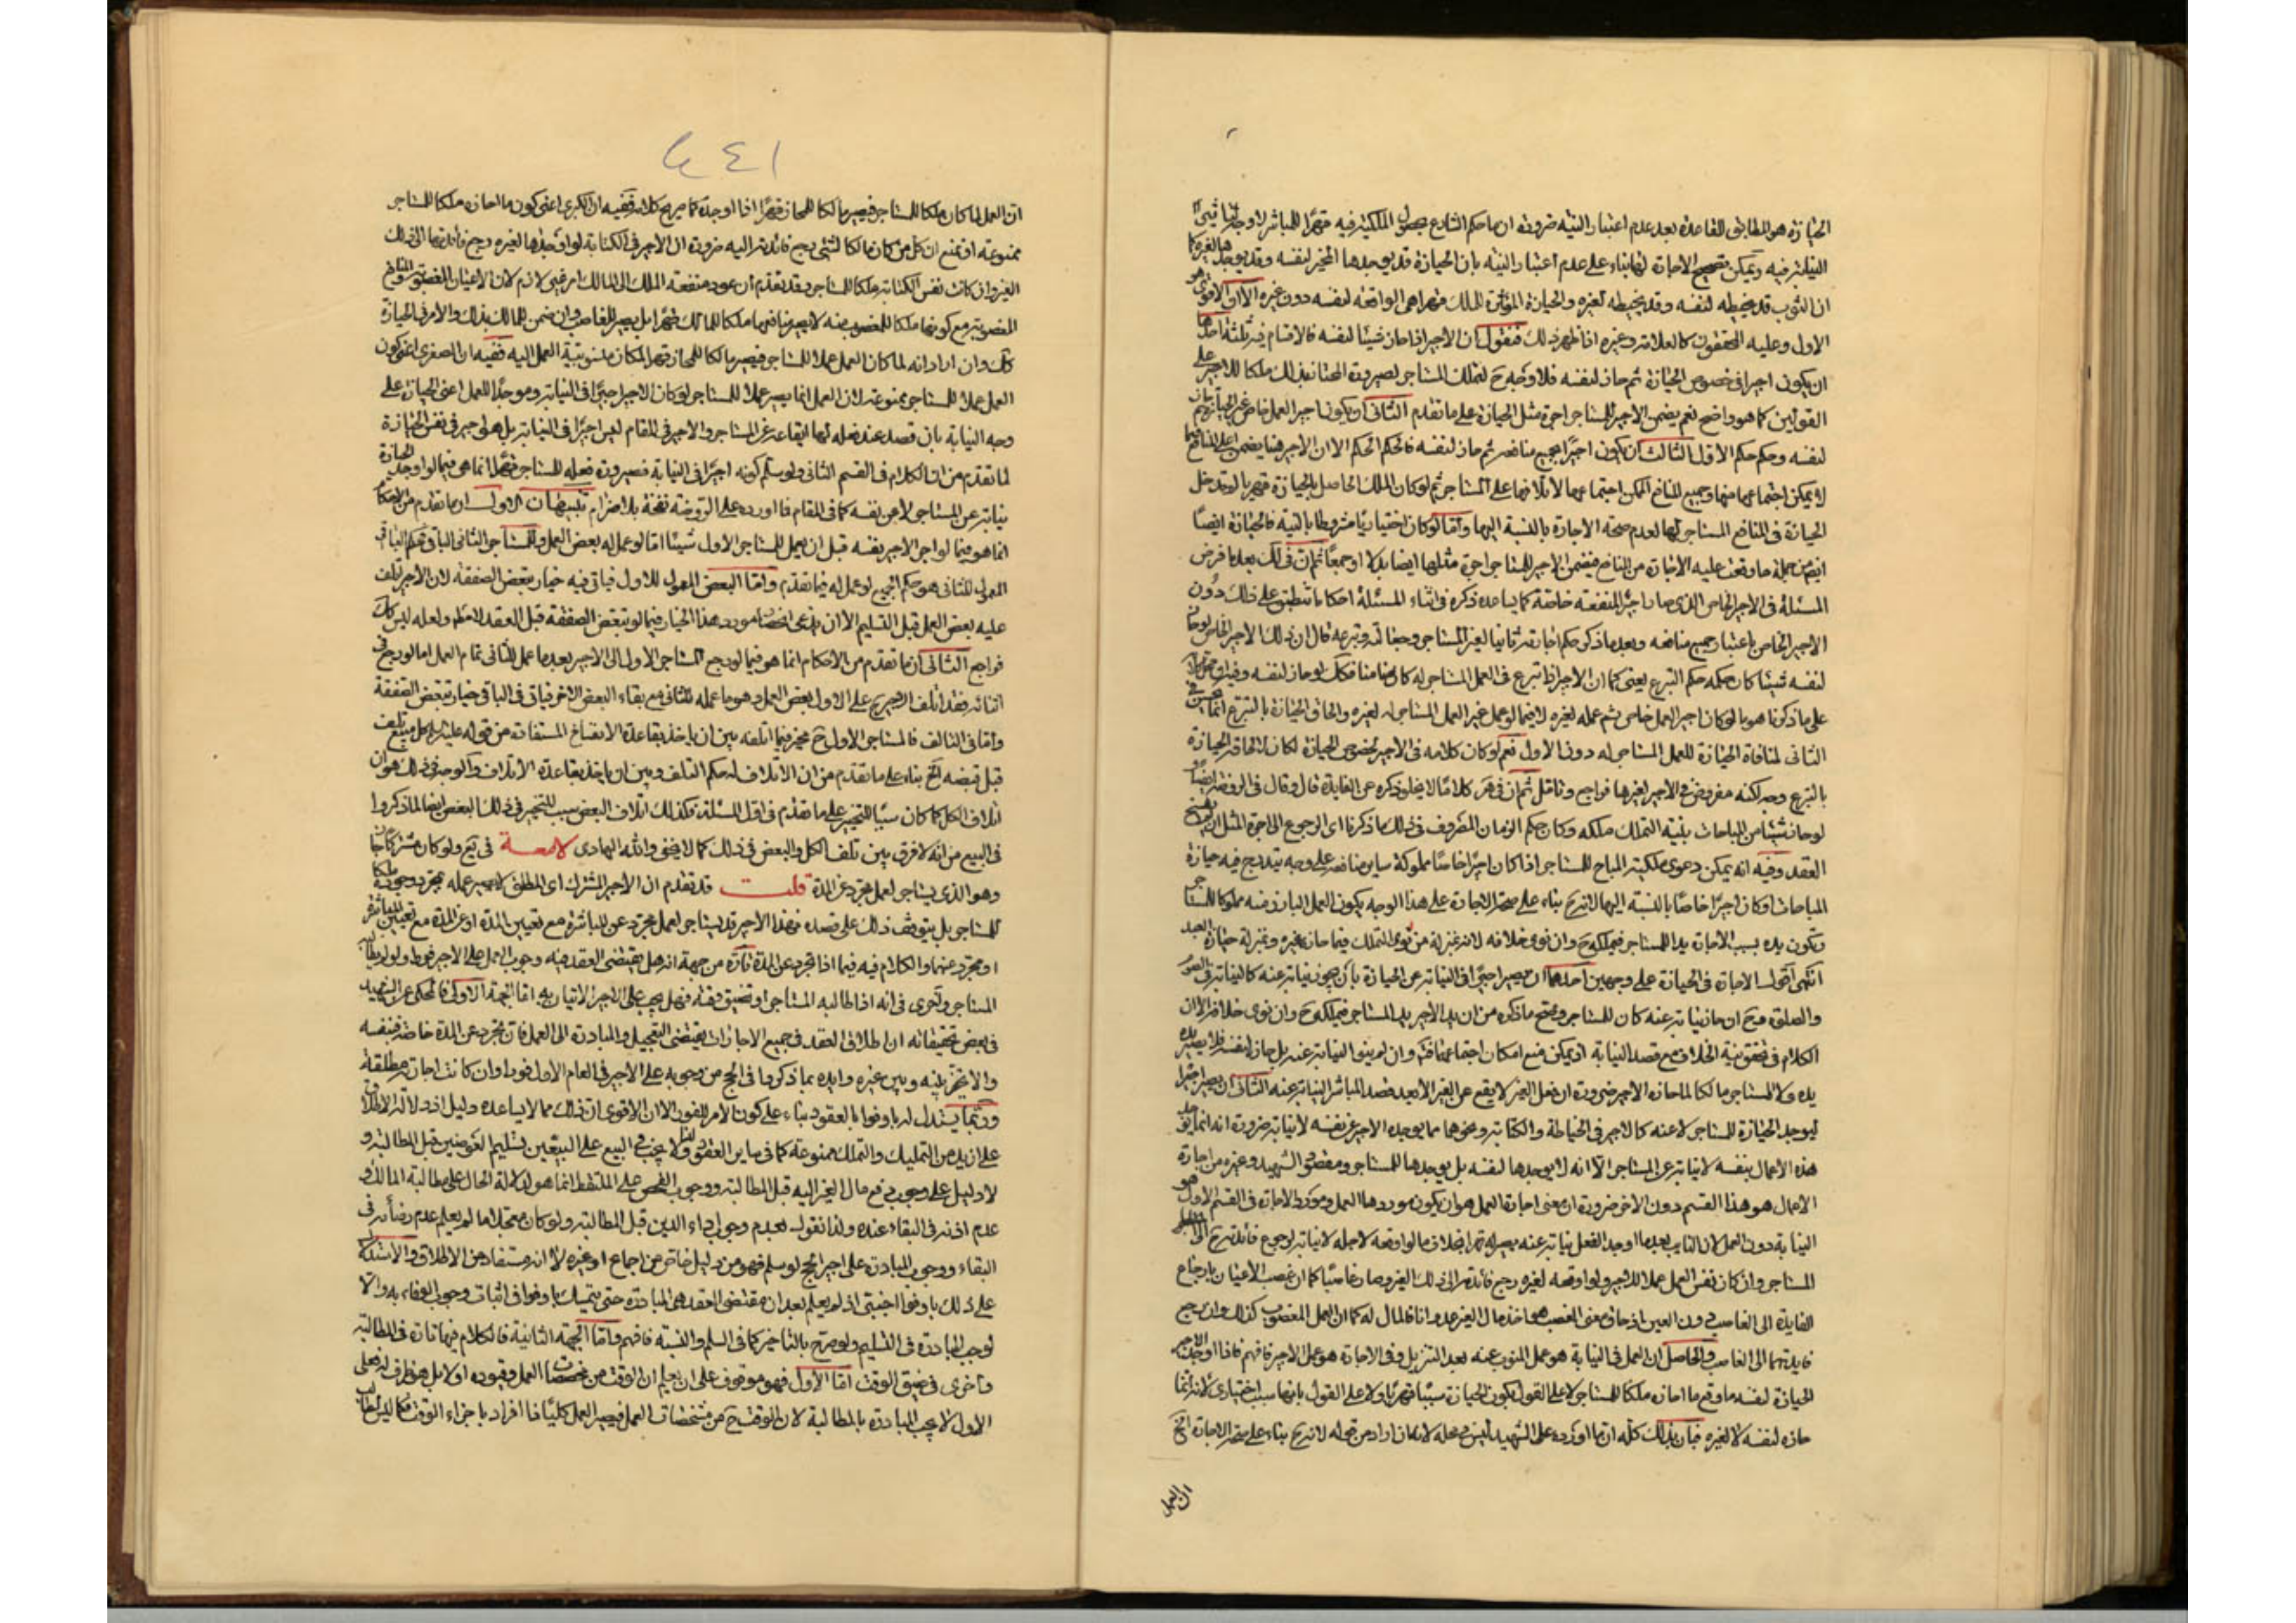 الحيازة هو المطابق للقاعدة بعد عدم اعتبار النية ضرورة ان ما حكم الشارع بحصول الملكية فيه قهرا للمباشر لا وجه
النيابة فيه ويمكن تصحيح الاجارة لها بناء على عدم اعتبار النية بان الحيازة قد يوجدها الخير لنفسه وقد يوجدها لغيره كما
ان الثوب قد يخيطه لنفسه وقد يخيطه لغيره والحيازة المؤثرة للملك قهرا هى الواقعة لنفسه دون غيره الا ان الاقوى هو
الاول وعليه المحققون كالعلامة وغيره اذا ظهر ذلك فنقول ان الاجير اذا حاز شيئا لنفسه فالاقسام فيه ثلثة احدها
ان يكون اجيرا فى خصوص الحيازة ثم حاز لنفسه فلا وجه ح لتملك المستاجر لصيرورة المحتاز بذلك ملكا للاجير على
القولين كما هو واضح نعم يضمن الاجير للمستاجر اجرة مثل الحيازة على ما تقدم الثانى ان يكون اجيرا لعمل خاص غير الحيازة
لنفسه وحكمه حكم الاول الثالث ان يكون اجيرا بجميع منافعه ثم حاز لنفسه فالحكم الحكم الا ان الاجير هنا يضمن اعلى المنافع
لا يمكن اجتماعهما منها وجميع المنافع الممكن اجتماعها لاتلافها على المستاجر ثم لو كان الملك الحاصل بالحيازة قهريا لم تدخل
الحيازة فى المنافع المستاجر لها لعدم صحة الاجارة بالنسبة اليها واما لو كان اختياريا مشروطا بالنية فالحيازة ايضا
من جملة ما وقعت عليه الاجارة من المنافع فيضمن الاجير للمستاجر اجرة مثلها ايضا بدلا او جمعا ثم ان فى لك بعد ما فرض
المسئلة فى الاجير الخاص الذى صار اجير المنفعة خاصة كما يساعده ذكره فى اثناء المسئلة احكاما تنطبق على ذلك دون
الاجير الخاص باعتبار جميع منافعه وبعد ما ذكر حكم اجارته ثانيا لغير المستاجر وجعالته وتبرعه قال ان ذلك الاجير الخاص لو حاز
لنفسه شيئا كان حكمه حكم التبرع يعنى كما ان الاجير اذا تبرع فى العمل المستاجر له كان ضامنا فكك لو حاز لنفسه
على ما ذكرنا هو ما لو كان اجيرا لعمل خاص ثم عمله لغيره لا فيما لو عمل غير العمل المستاجر له لغيره والحاق الحيازة بالتبرع انما يحسن فى
الثانى لمنافاة الحيازة للعمل المستاجر له دون الاول نعم لو كان كلامه فى الاجير لخصوص الحيازة لكان لالحاقه الحيازة
بالتبرع وجه لكنه مفروض فى الاجير لغيرها فراجع وتامل ثم ان فى هر كلاما لا يخلو ذكره عن الفايدة قال وقال فى الروضة ايضا
لو حاز شيئا من المباحات بنية التملك ملكه وكان حكم الزمان المصروف فى ذلك ما ذكرنا اى الرجوع الى اجرة المثل ان لم يفسخ
العقد وفيه انه يمكن دعوى ملكية المباح للمستاجر اذا كان اجيرا خاصا مملوكة ساير منافعه على وجه يندرج فيه حيازة
المباحات او كان اجيرا خاصا بالنسبة اليها لانه ح بناء على صحة الاجارة على هذا الوجه يكون العمل البارز منه مملوكا للمستاجر
وتكون يده بسبب الاجارة يد المستاجر فيملكه ح وان نوى خلافه لانه بمنزلة من نوى التملك فيما حازه غيره وبمنزلة حيازة العبد
انتهى اقول الاجارة فى الحيازة على وجهين احدهما ان يصير اجيرا فى النيابة عن الحيازة بان يحوز نيابة عنه كالنيابة فى الصوم
والصلوة فح ان حاز نيابة عنه كان للمستاجر وصح ما ذكره من ان يد الاجير يد المستاجر فيملكه ح وان نوى خلافه الا ان
الكلام فى تحقق نية الخلاف مع قصد النيابة اذ يمكن منع امكان اجتماعهما وان لم ينو النيابة عنه بل حاز لنفسه فلا يصير يده
يده ولا المستاجر مالكا لما حازه الاجير ضرورة ان فعل الغير لا يقع عن الغير الا بعد قصد المباشر النيابة عنه الثانى ان يصير اجيرا
ليوجد الحيازة للمستاجر لا عنه كالاجير فى الخياطة والكتابة ونحوهما مما يوجده الاجير عن نفسه لا نيابة ضرورة انه انما يوجد
هذه الاعمال بنفسه لا نيابة عن المستاجر الا انه لا يوجدها لنفسه بل يوجدها للمستاجر ومقصود الشهيد وغيره من اجارة
الاعمال هو هذا القسم دون الاخر ضرورة ان معنى اجارة العمل هو ان يكون موردها العمل ومورد الاجارة فى القسم الاول هو
النيابة دون العمل لان النايب بعد ما اوجد الفعل نيابة عنه يصير له قهرا بخلاف ما لو اوقعه لاجله لا نيابة لرجوع فائدته ح الى
المستاجر وان كان نفس العمل عملا للاجير ولو اوقعه لغيره رجع فائدته الى ذلك الغير وصار غاصبا كما ان غصب الاعيان بارجاع
الفايدة الى الغاصب دون العين اذ حاق معنى الغصب هو اخذ مال الغير عدوانا فالمال له كما ان العمل المغصوب كذلك وان رجع
فايدتهما الى الغاصب والحاصل ان العمل فى النيابة هو عمل المنوب عنه بعد التنزيل وفى الاجارة هو عمل الاجير فافهم فاذا اوجد الاجير
الحيازة لنفسه ما وقع ما احازه ملكا للمستاجر لا على القول بكون الحيازة سببا قهريا ولا على القول بانها سبب اختيارى لانه انما
حازه لنفسه لا لغيره فبان بذلك كله ان ما اورده على الشهيد ليس فى محله لانه ان اراد من قوله لانه ح بناء على صحة الاجارة الخ
ان العمل
٤٤١
ان العمل لما كان ملكا للمستاجر فيصير مالكا للمحاز قهرا اذا اوجده كما هو صريح كلامه ففيه ان الكبرى اعنى كون ما احازه ملكا للمستاجر
ممنوعة اذ نمنع ان كل من كان مالكا لشئ يرجع فائدته اليه ضرورة ان الاجير فى الكتابة لو اوجدها لغيره رجع فائدتها الى ذلك
الغير وان كانت نفس الكتابة ملكا للمستاجر وقد تقدم ان عود منفعة الملك الى المالك امر غير لازم لان الاعيان المغصوبة والمنافع
المغصوبة مع كونها ملكا للمغصوب منه لا يصير منافعها ملكا للمالك قهرا بل يصير للغاصب وان ضمن للمالك بذلك والامر فى الحيازة
كك وان اراد انه لما كان العمل عملا للمستاجر فيصير مالكا للمحاز قهرا لمكان منسوبية العمل اليه ففيه ان الصغرى اعنى كون
العمل عملا للمستاجر ممنوعة لان العمل انما يصير عملا للمستاجر لو كان الاجير اجيرا فى النيابة وموجدا للعمل اعنى الحيازة على
وجه النيابة بان قصد عند فعله لها ايقاعه عن المستاجر والاجير فى المقام ليس اجيرا فى النيابة بل هو اجير فى نفس الحيازة
لما تقدم من ان الكلام فى القسم الثانى ولو سلم كونه اجيرا فى النيابة فصيرورة فعله للمستاجر قهرا انما هى فيما لو اوجد الحيازة
نيابة عن المستاجر لا عن نفسه كما فى المقام فما اورده على الروضة نفخة بلا ضرام تنبيهات الاول ان ما تقدم من الاحكام
انما هو فيما لو اجر الاجير نفسه قبل ان يعمل للمستاجر الاول شيئا اما لو عمل له بعض العمل وللمستاجر الثانى الباقى فحكم الباقى
المعمول للثانى هو حكم الجميع لو عمل له فيما تقدم واما البعض المعمول للاول فياتى فيه خيار تبعض الصفقة لان الاجير اتلف
عليه بعض العمل قبل التسليم الا ان يدعى اختصاص مورد هذا الخيار فيما لو تبعض الصفقة قبل العقد لا مطلقا ولعله ليس كك
فراجع الثانى ان ما تقدم من الاحكام انما هو فيما لو رجع المستاجر الاول الى الاجير بعد ما عمل للثانى تمام العمل اما لو رجع فى
اثنائه فقد اتلف الاجير ح على الاول بعض العمل وهو ما عمله للثانى مع بقاء البعض الاخر فياتى فى الباقى خيار تبعض الصفقة
واما فى التالف فالمستاجر الاول ح مخير فيما اتلفه بين ان ياخذ بقاعدة الانفساخ المستفادة من قوله عليه السلام كل مبيع تلف
قبل قبضه الخ بناء على ما تقدم من ان الاتلاف له حكم التلف وبين ان ياخذ بقاعدة الاتلاف والوجه فى ذلك هو ان
اتلاف الكل كما كان سببا للتخيير على ما تقدم فى اول المسئلة فكذلك اتلاف البعض سبب للتخيير فى ذلك البعض ايضا لما ذكروا
فى البيع من انه لا فرق بين تلف الكل والبعض فى ذلك كما لا يخفى والله الهادى لامعة فى يع ولو كان مشتركا جاز
وهو الذى يستاجر لعمل مجرد عن المدة قلت قد تقدم ان الاجير المشترك اى المطلق لا يصير عمله بمجرد وجوده ملكا
للمستاجر بل يتوقف ذلك على قصده فهذا الاجير قد يستاجر لعمل مجرد عن المباشرة مع تعيين المدة او عن المدة مع تعيين المباشرة
او مجرد عنهما والكلام فيه فيما اذا تجرد عن المدة تارة من جهة انه هل يقتضى العقد فيه وجوب العمل على الاجير فورا ولو لم يطالب
المستاجر واخرى فى انه اذا طالبه المستاجر او تضيق وقته فهل يجب على الاجير الاتيان به اما الجهة الاولى فالمحكى عن الشهيد
فى بعض تحقيقاته ان اطلاق العقد فى جميع الاجارات يقتضى التعجيل والمبادرة الى العمل فان تجرد عن المدة خاصة فبنفسه
والا تخير بينه وبين غيره وايده بما ذكروا فى الحج من وجوبه على الاجير فى العام الاول فورا وان كانت اجارته مطلقة
وربما يستدل له باوفوا بالعقود بناء على كون الامر للفور الا ان الاقوى ان ذلك مما لا يساعده دليل اذ دلالة الاطلاق
على ازيد من التمليك والتملك ممنوعة كما فى ساير العقود ولذا لا يجب فى البيع على البيعين تسليم العوضين قبل المطالبة و
لا دليل على وجوب دفع مال الغير اليه قبل المطالبة ووجوب الفحص على الملتقط انما هو لدلالة الحال على مطالبة المالك و
عدم اذنه فى البقاء عنده ولذا نقول بعدم وجوب اداء الدين قبل المطالبة ولو كان معجلا ما لم يعلم عدم رضائه فى
البقاء ووجوب المبادرة على اجير الحج لو سلم فهو من دليل خاص من اجماع او غيره لا انه مستفاد من الاطلاق والاستدلال
على ذلك باوفوا اجنبى اذ لم يعلم بعد ان مقتضى العقد هى المبادرة حتى يتمسك باوفوا فى اثبات وجوب الوفاء به والا
لوجب المبادرة فى التسليم ولو صرح بالتاخير كما فى السلم والنسية فافهم واما الجهة الثانية فالكلام فيها تارة فى المطالبة
واخرى فى ضيق الوقت اما الاول فهو موقوف على ان يعلم ان الوقت من مشخصات العمل وقيوده او لا بل هو ظرف له فعلى
الاول لا يجب المبادرة بالمطالبة لان الوقت ح من مشخصات العمل فيصير العمل كليا ذا افراد باجزاء الوقت فكما ليس لطالب